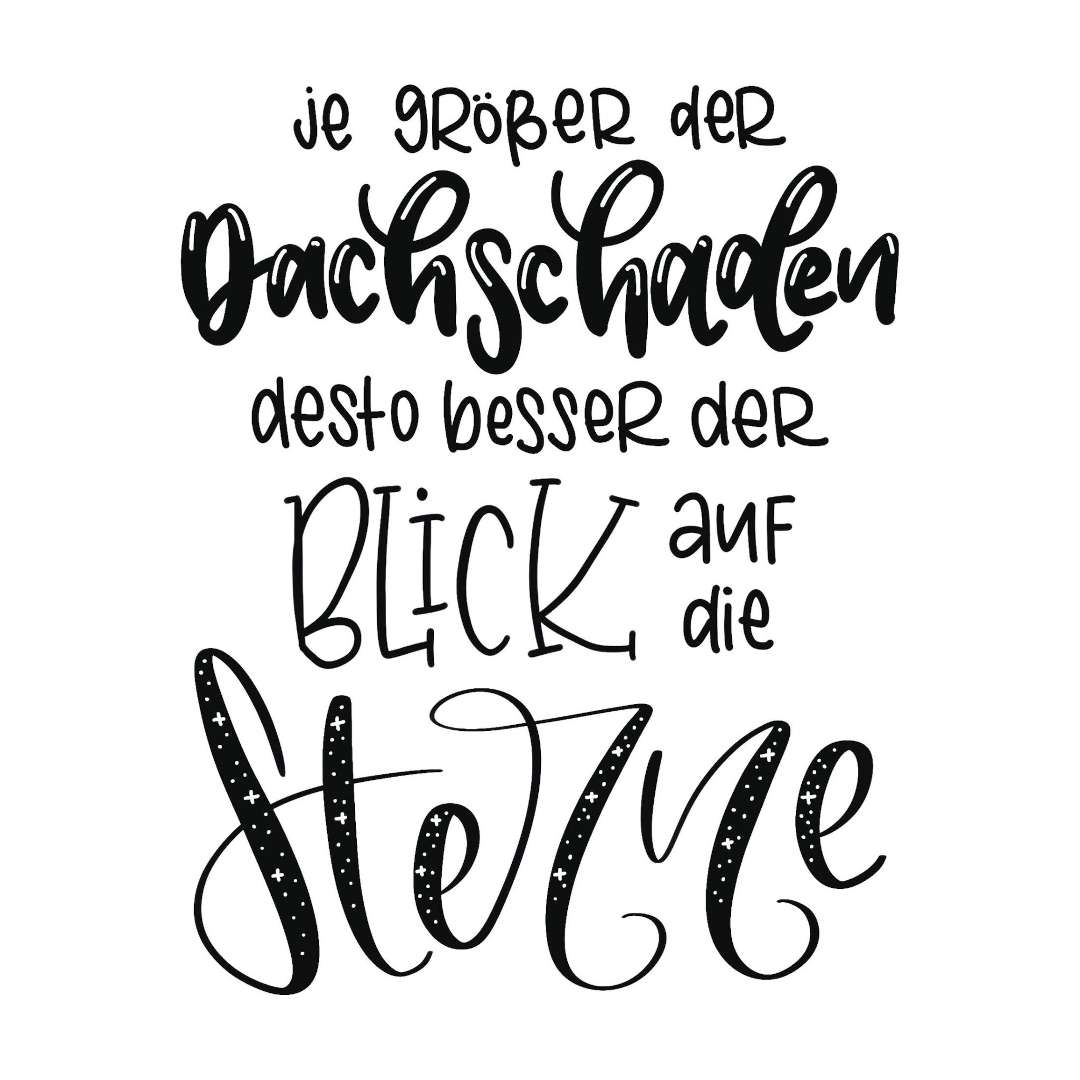 je größer der
Dachschaden
desto besser der
BLiCK auf
die
Sterne